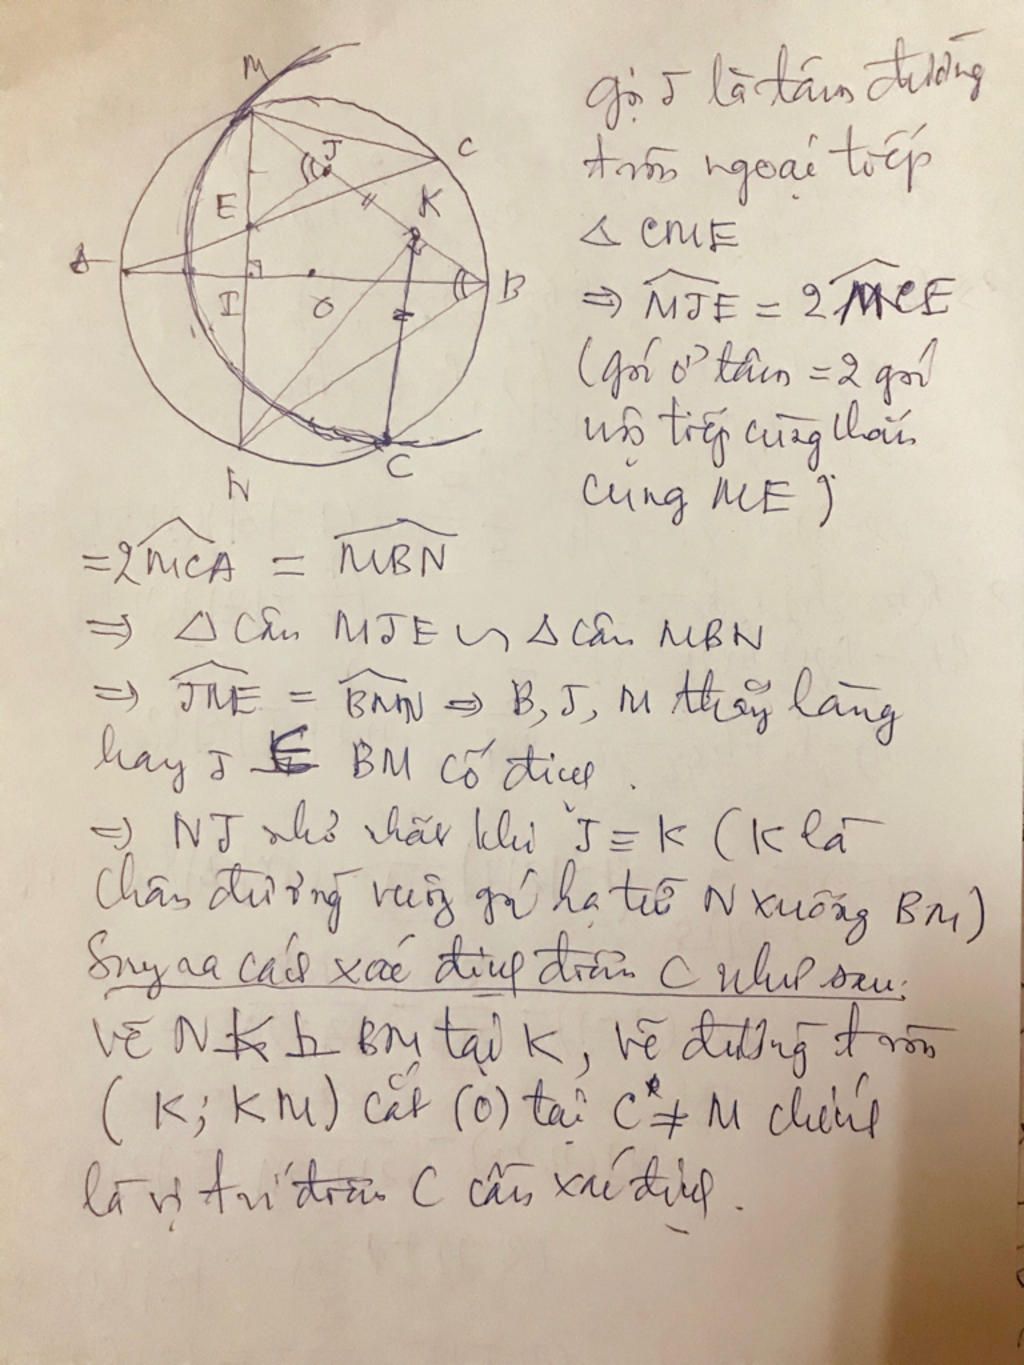 M
J
C
E
K
A
I
O
B
N
C
gọi J là tâm đường
tròn ngoại tiếp
△ CME
⇒ MJE = 2 MCE
(góc ở tâm = 2 góc
nội tiếp cùng chắn
cung ME)
= 2 MCA = MBN
⇒ △ cân MJE ∽ △ cân MBN
⇒ JME = BMN ⇒ B, J, M thẳng hàng
hay J ∈ BM cố định.
⇒ NJ nhỏ nhất khi J ≡ K (K là
chân đường vuông góc hạ từ N xuống BM)
Suy ra cách xác định điểm C như sau:
Vẽ NK ⊥ BM tại K, vẽ đường tròn
(K; KM) cắt (O) tại C ≠ M chính
là vị trí điểm C cần xác định.